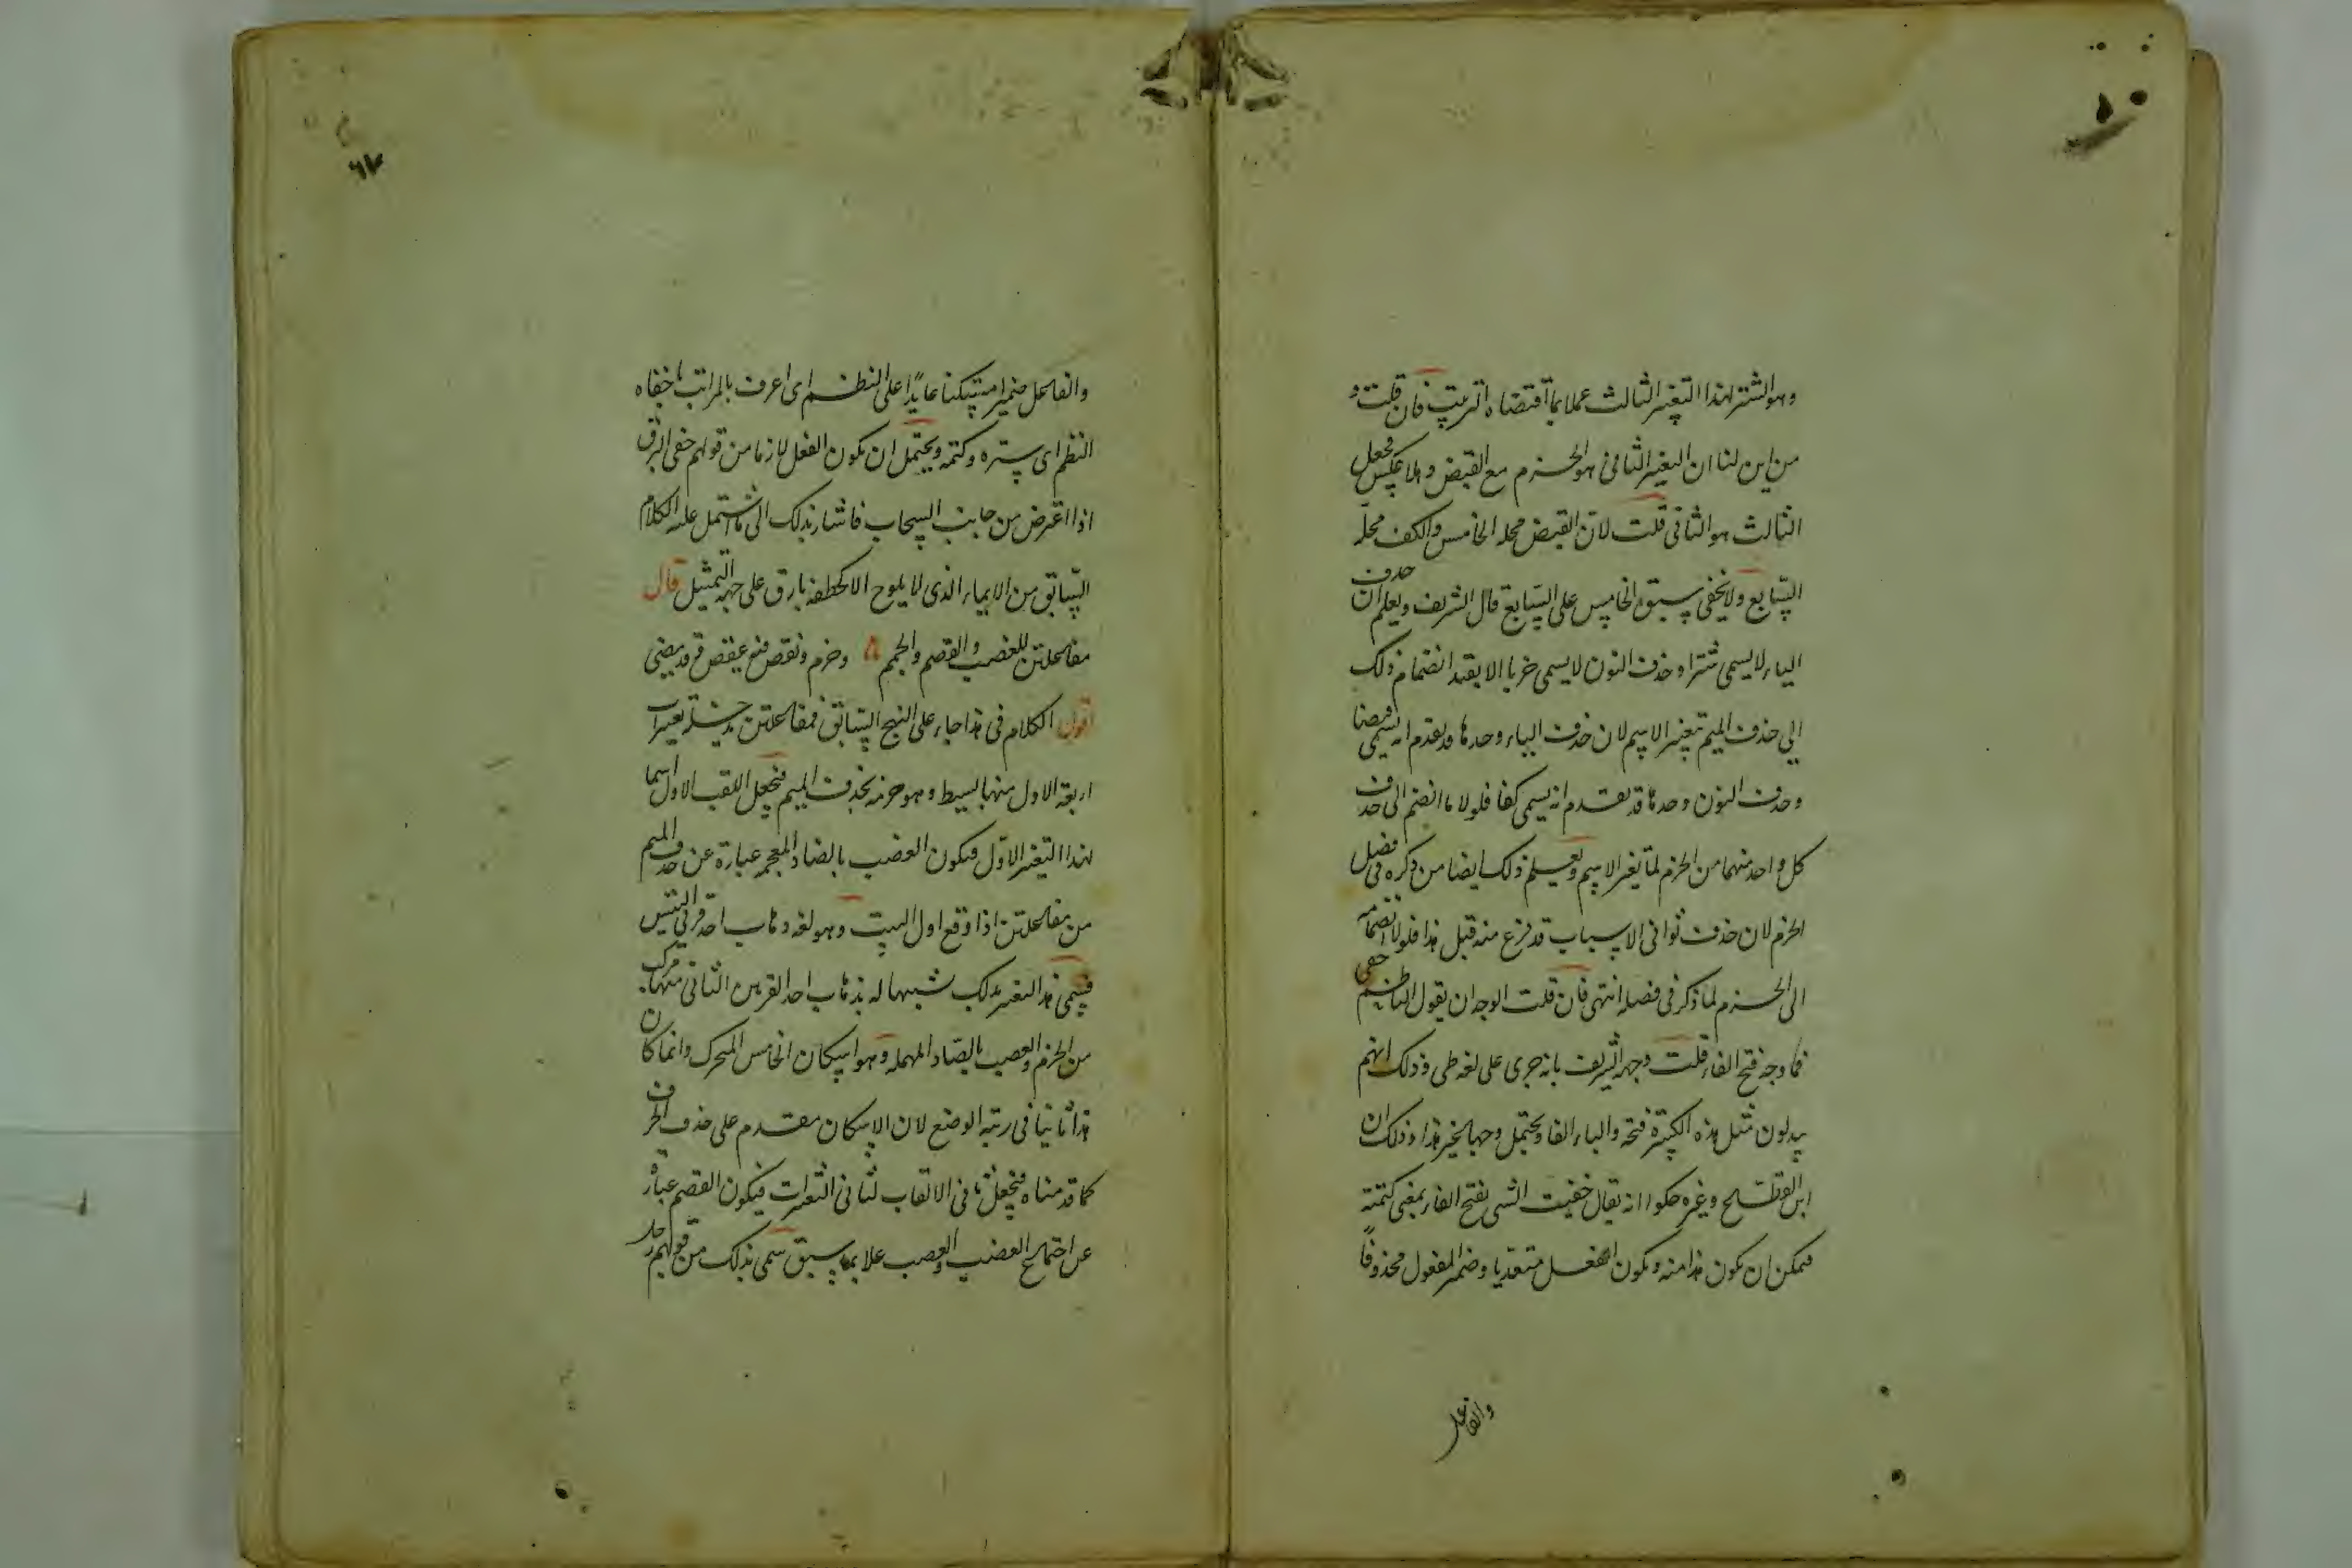 وهو الشتر لهذا التغير الثالث عملا بما اقتضاه الترتيب فان قلت و
من اين لنا ان التغير الثاني هو الخرم مع القبض وهلا عكس فجعل
الثالث هو الثاني قلت لان القبض محله الخامس والكف محله
السابع ولا يخفى سبق الخامس على السابع قال الشريف ويعلم ان حذف
الياء لا يسمى شترا وحذف النون لا يسمى خربا الا بقيد انضمام ذلك
الى حذف الميم تغير الاسم لان حذف الياء وحدها قد تقدم انه يسمى قبضا
وحذف النون وحدها قد تقدم انه يسمى كفا فلولا ما انضم الى حذف
كل واحد منهما من الخرم لما تغير الاسم ويعلم ذلك ايضا من ذكره في فصل
الخرم لان حذف ثواني الاسباب قد فرغ منه قبل هذا فلولا انضمامه
الى الخرم لما ذكر في فصله انتهى فان قلت الوجه ان يقول الناظم خفي
فما وجه فتح الفاء قلت وجهه الشريف بانه جرى على لغة طي وذلك انهم
يبدلون مثل هذه الكسرة فتحة والياء الفا ويحتمل وجها اخر هذا وذلك ان
ابن القطاع وغيره حكوا انه يقال خفيت الشي بفتح الفاء بمعنى كتمته
فيمكن ان يكون هذا منه ويكون الفعل متعديا وضمير المفعول محذوفا
والفاعل
٦٧
والفاعل ضميرا مستكنا عايدا على النظم اى اعرف بالمراتب ما خفاه
النظم اى ستره وكتمه ويحتمل ان يكون الفعل لازما من قولهم خفى البرق
اذا اعترض من جانب السحاب فاشار بذلك الى ما اشتمل عليه الكلام
السابق من الايماء الذي لا يلوح الا كخطفة بارق على جهة التمثيل قال
مفاعلتن للعضب والقصم والجمم وخرم ونقص فيه عقص قد مضى
اقول الكلام في هذا جاء على النهج السابق فمفاعلتن يدخله تغييرات
اربعة الاول منها بسيط وهو خرمه بحذف الميم فنجعل اللقب الاول اسما
لهذا التغير الاول فيكون العضب بالضاد المعجمة عبارة عن حذف الميم
من مفاعلتن اذا وقع اول البيت وهو لغة ذهاب احد قرني التيس
فسمى هذا التغير بذلك تشبيها له بذهاب احد القرنين الثاني منها مركب
من الخرم والعصب بالصاد المهملة وهو اسكان الخامس المتحرك وانما كان
هذا ثانيا في رتبة الوضع لان الاسكان مقدم على حذف الحرف
كما قدمناه فنجعل ثاني الالقاب لثاني التغيرات فيكون القصم عبارة
عن اجتماع العضب والعصب عملا بما سبق سمى بذلك من قولهم رجل